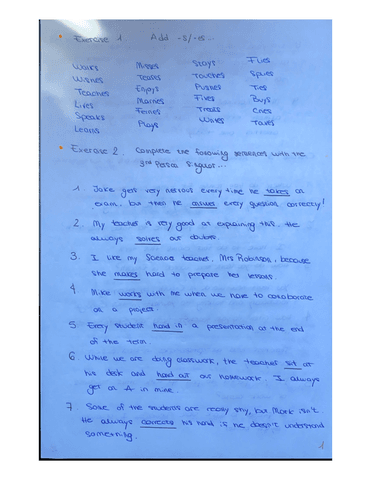 • Exercise 1 Add -s/-es...
Works Misses Stays Flies
Wishes Teases Touches Spies
Teaches Enjoys Pushes Ties
Lives Marries Fixes Buys
Speaks Fries Treats Cries
Learns Plays Takes
• Exercise 2. Complete the following sentences with the
3rd Person Singular...
1 Jake gets very nervous every time he takes an
exam, but then he answers every question correctly!
2. My teacher is very good at explaining this. He
always solves our doubts.
3. I like my Science teacher, Mrs Robinson, because
she makes hard to prepare her lessons.
4. Mike works with me when we have to collaborate
on a project.
5 Every student hand in a presentation at the end
of the term.
6 While we are doing classwork, the teacher sit at
his desk and hand out our homework. I always
get an A in mine.
7. Some of the students are really shy, but Mark isn't.
He always his hand is he doesn't understand
something.
1